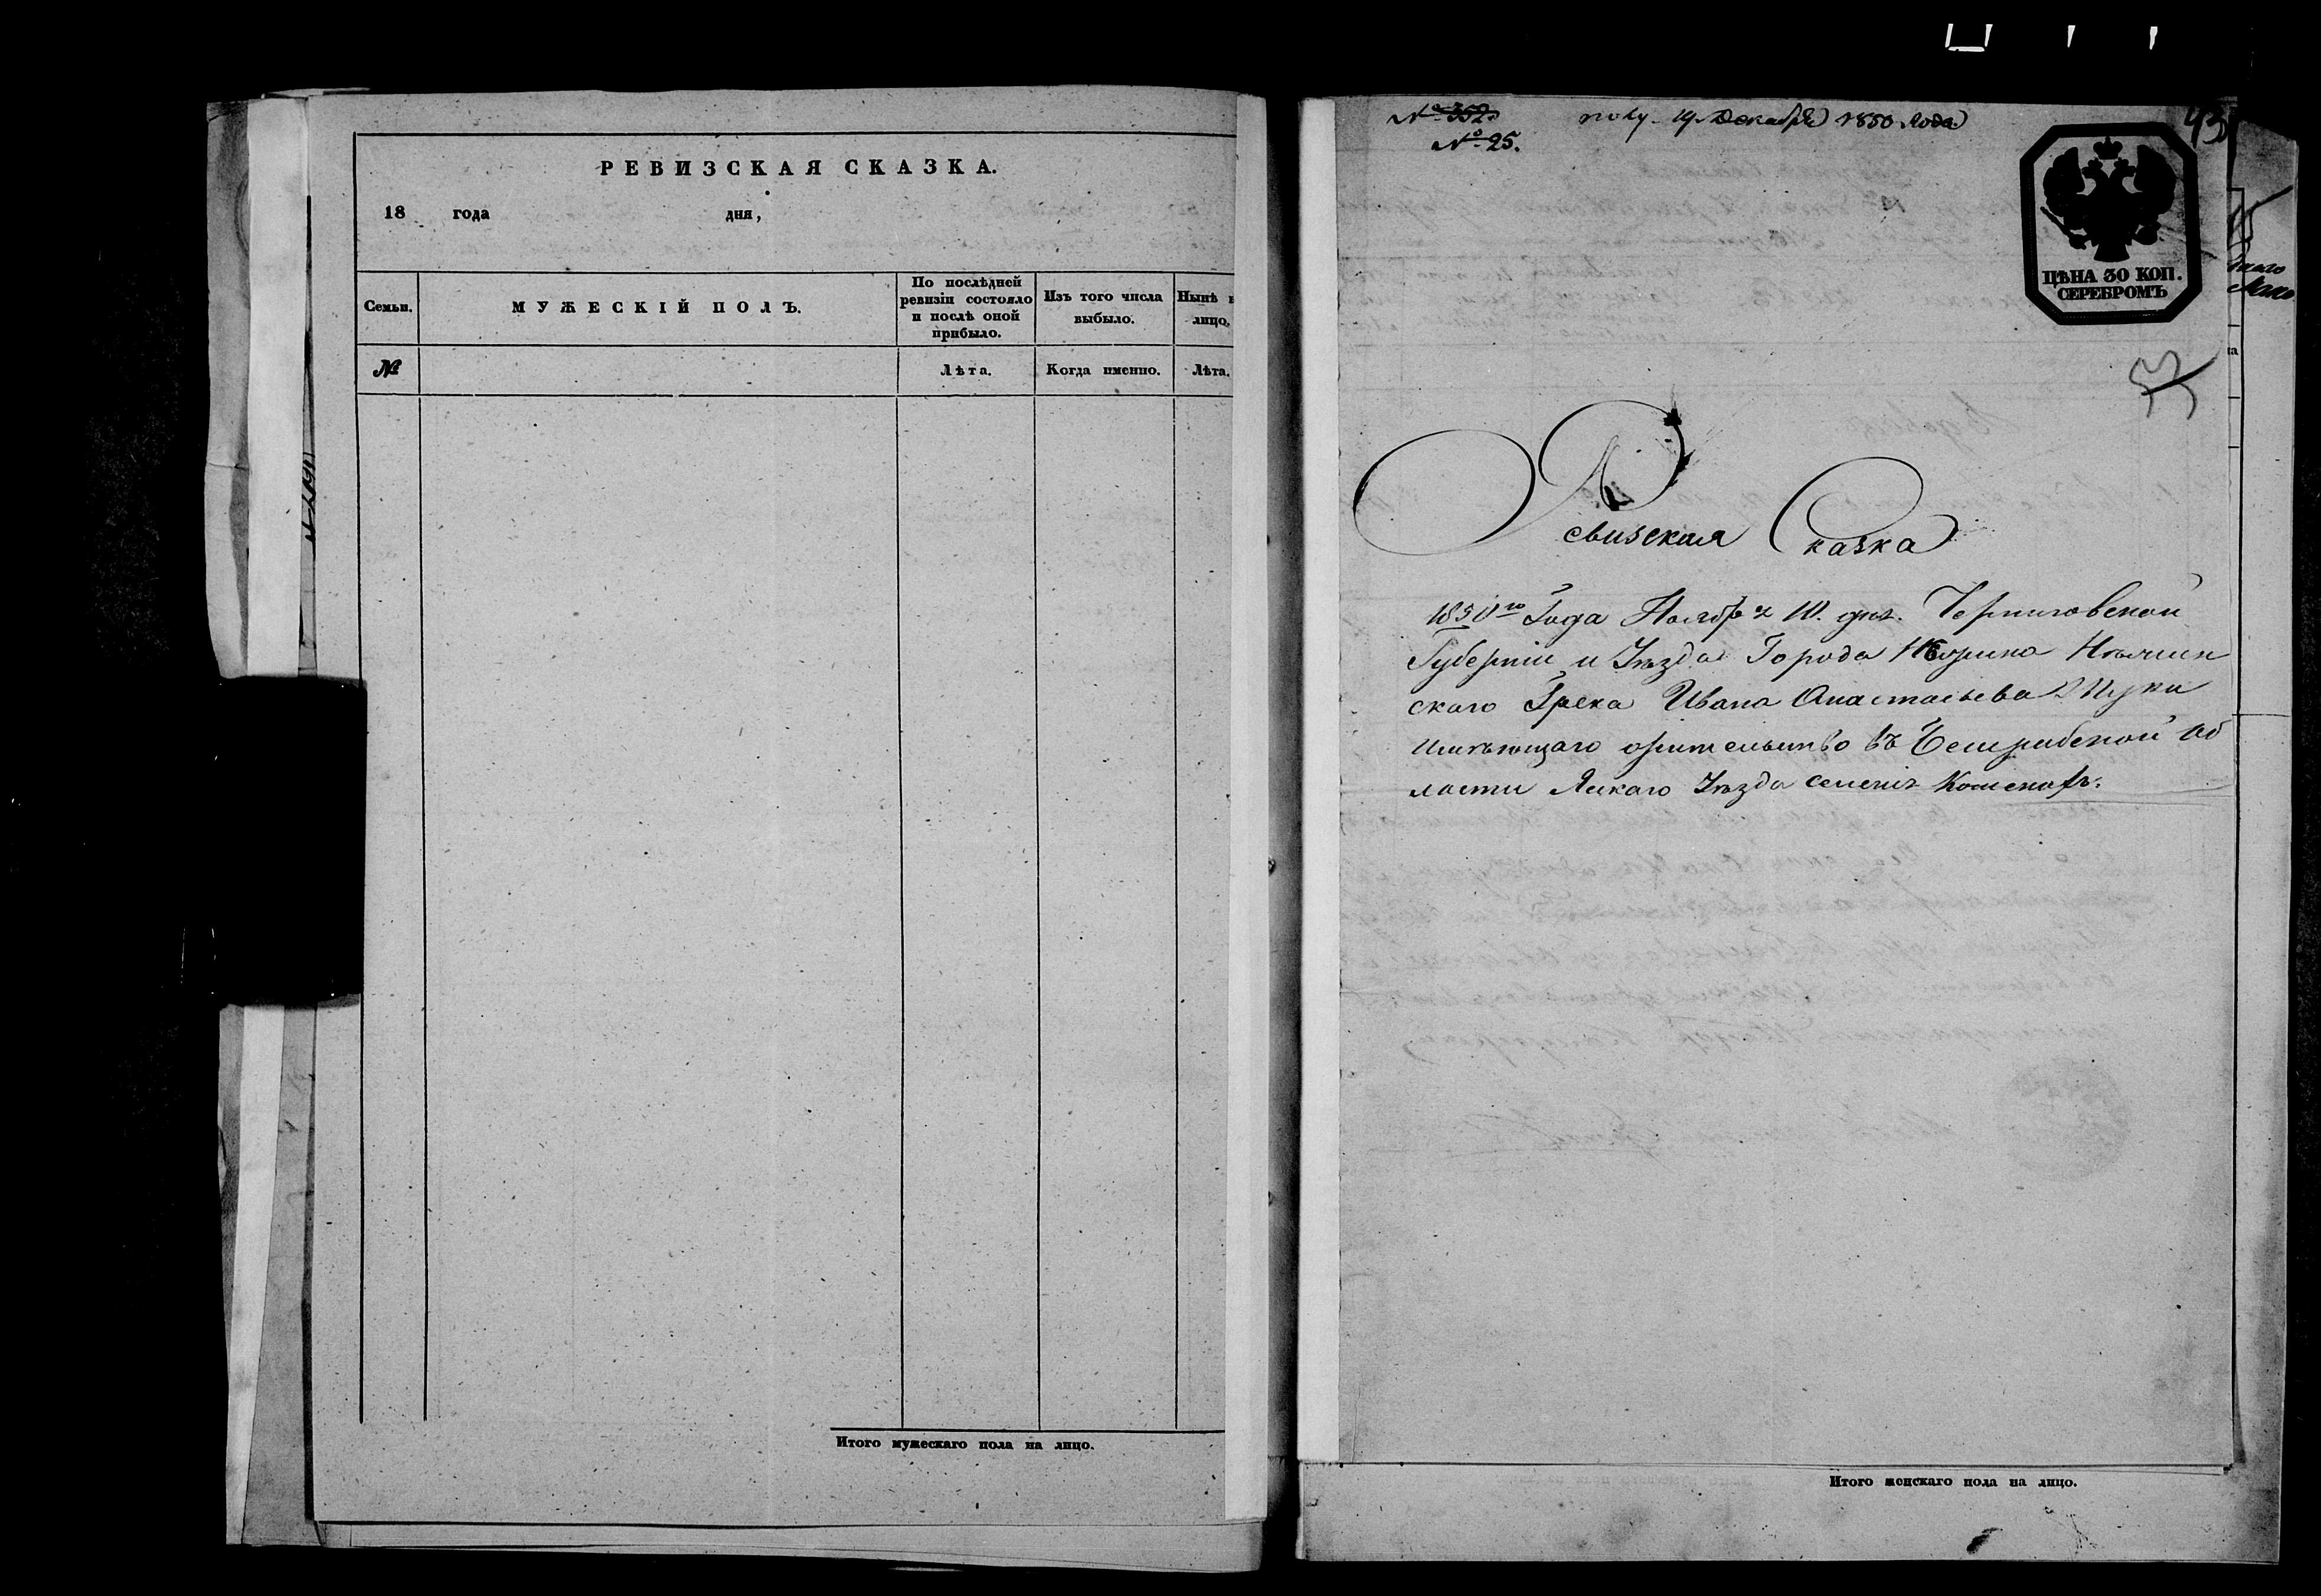 РЕВИЗСКАЯ СКАЗКА.
18 года дня,
Семьи.
МУЖЕСКІЙ ПОЛЪ.
По послѣдней ревизіи состояло и послѣ оной прибыло.
Изъ того числа выбыло.
Нынѣ н лицо,
№
Лѣта.
Когда именно.
Лѣта.
Итого мужескаго пола на лицо.
№ 352.
№ 25.
полу. 19 Декабря 1850 года
43
ЦѢНА 30 КОП.
СЕРЕБРОМЪ
Ревизская Сказка
1850го Года Ноября 10. дня. Черниговской
Губерніи и Уѣзда Города Нѣжина Нѣжин
скаго Грека Ивана Анастасьева
имѣющаго жительство въ Бессарабской об
ласти Яскаго Уѣзда селеніи
Итого женскаго пола на лицо.